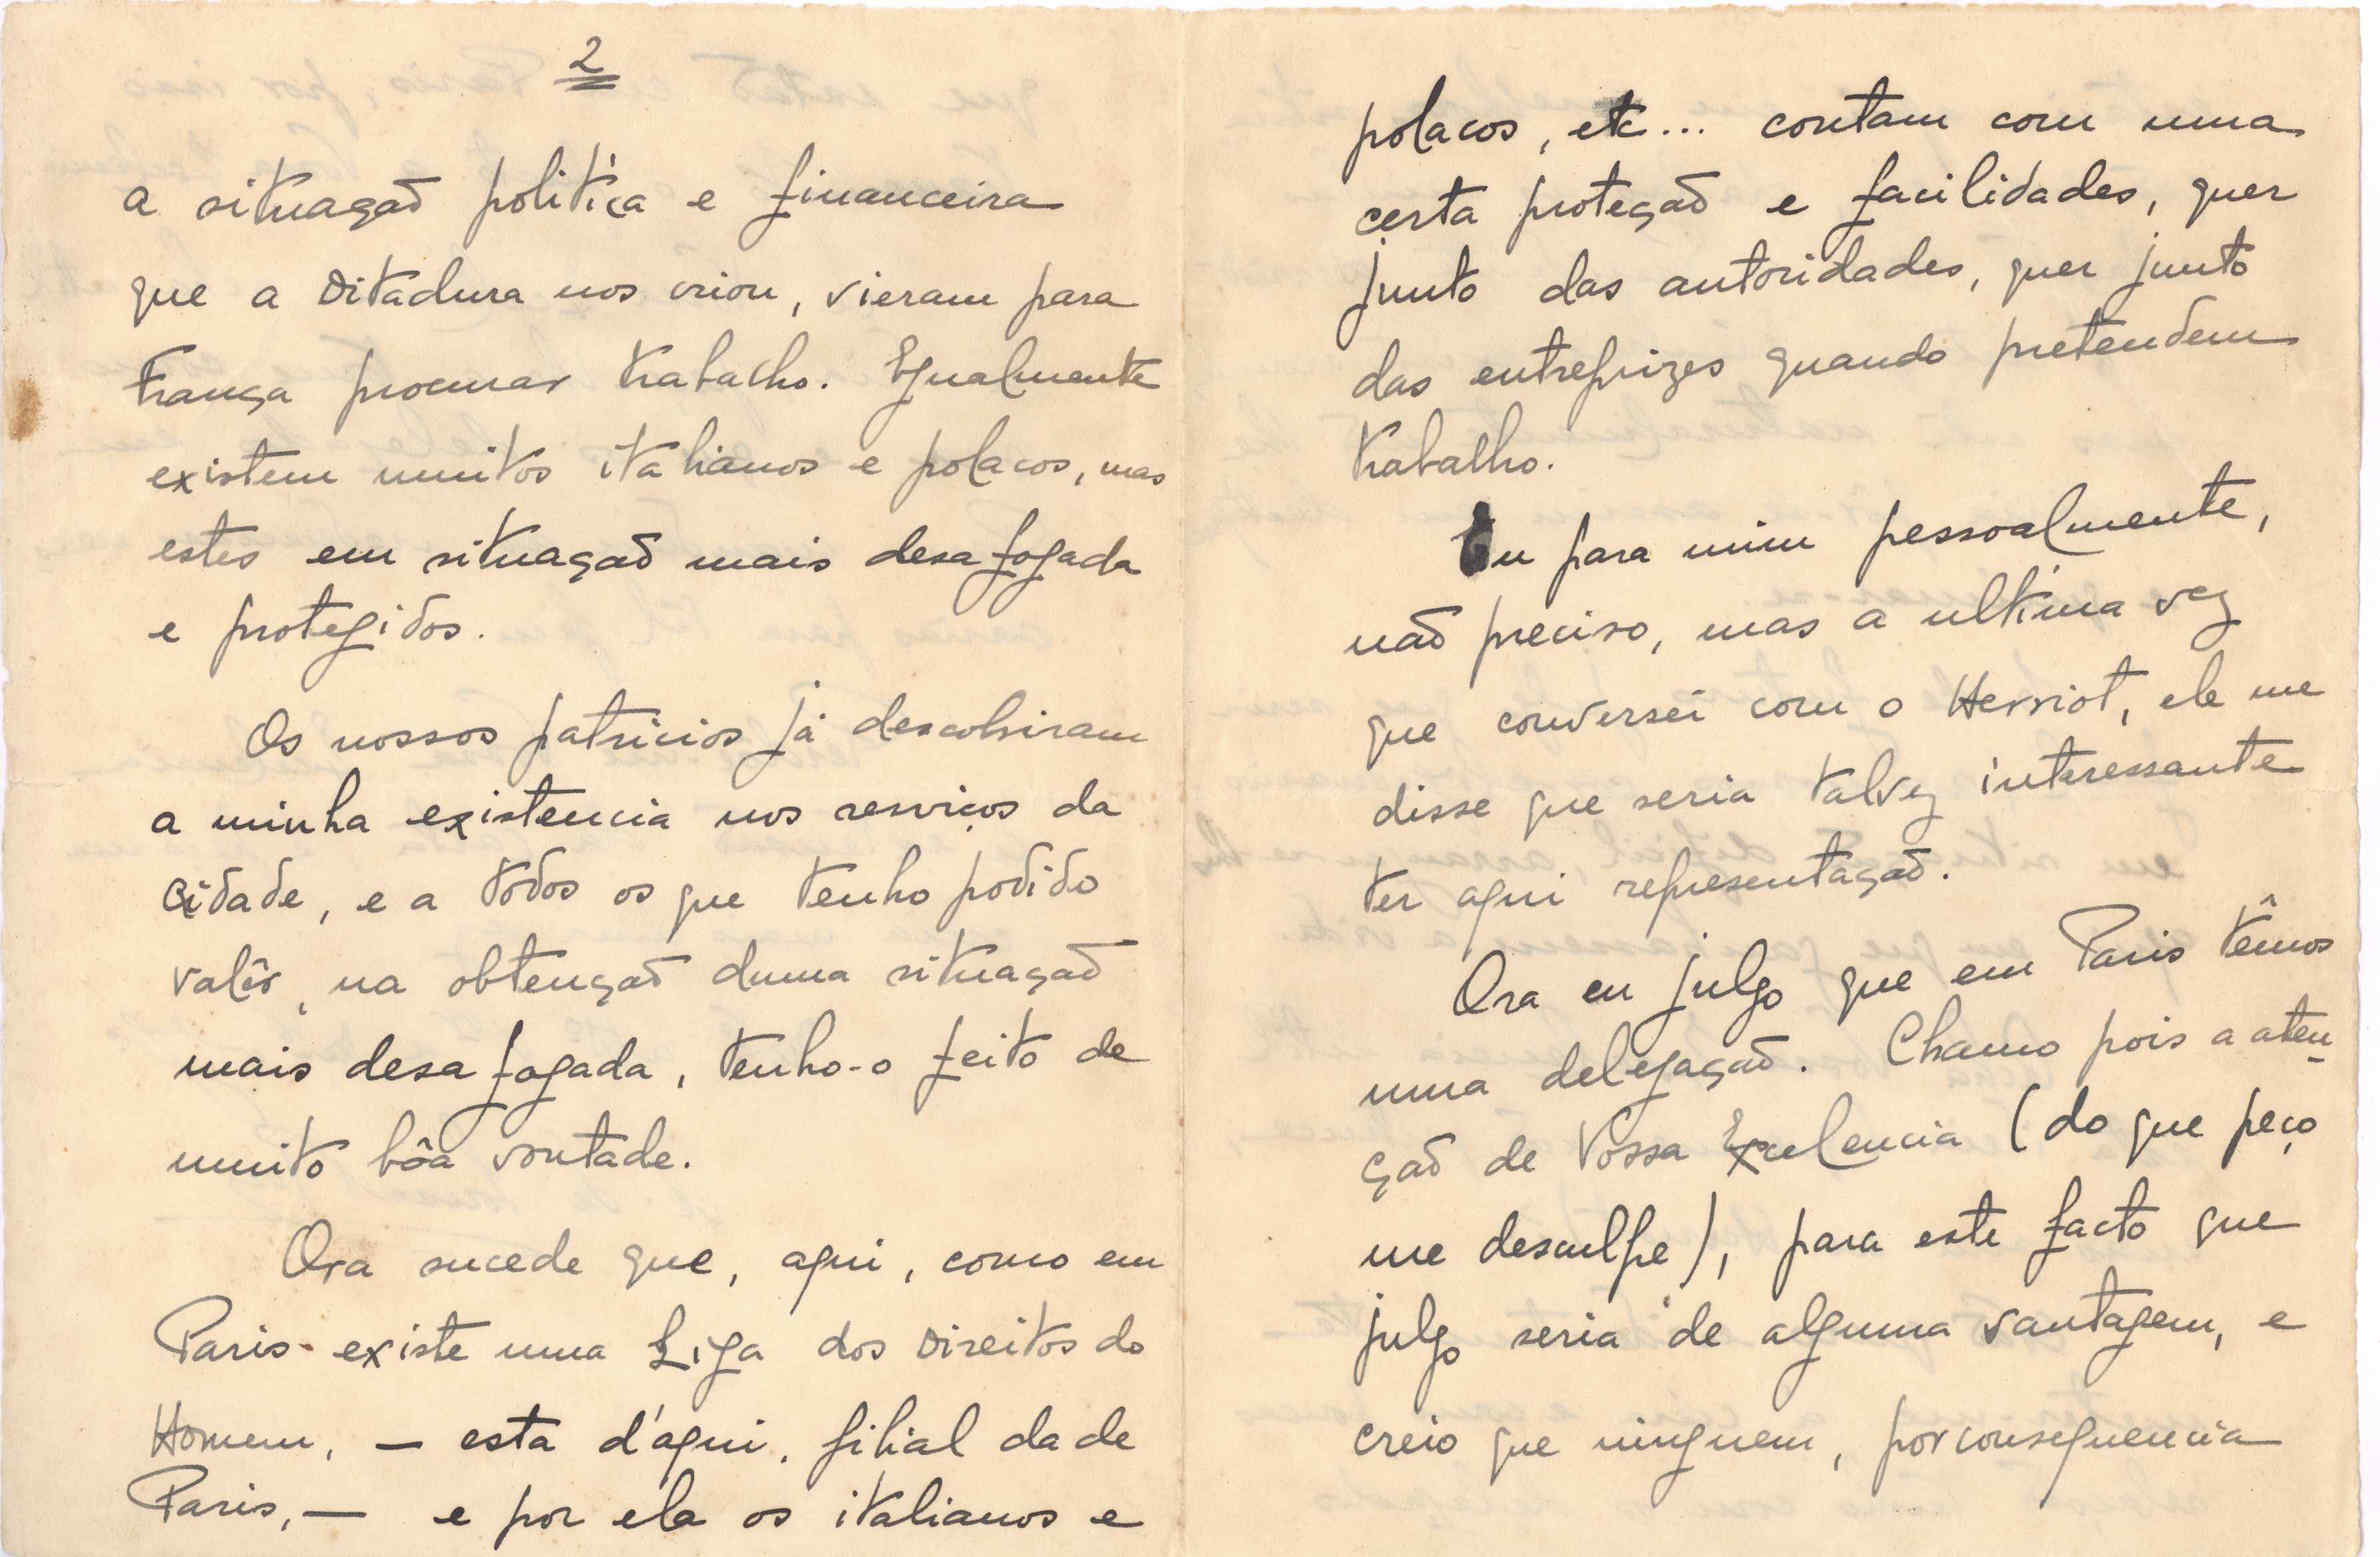 2
a situação politica e financeira
que a Ditadura nos criou, vieram para
França procurar trabalho. Egualmente
existem muitos italianos e polacos, mas
estes em situação mais desafogada
e protegidos.
Os nossos patricios já descobriram
a minha existencia nos serviços da
Cidade, e a todos os que tenho podido
valêr, na obtenção duma situação
mais desafogada, tenho-o feito de
muito bôa vontade.
Ora sucede que, aqui, como em
Paris existe uma Liga dos Direitos do
Homem, — esta d'áqui, filial da de
Paris, — e por ela os italianos e
polacos, etc... contam com uma
certa proteção e facilidades, quer
junto das autoridades, quer junto
das entreprizes quando pretendem
trabalho.
Eu para mim pessoalmente,
não preciso, mas a ultima vez
que conversei com o Herriot, ele me
disse que seria talvez interessante
ter aqui representação.
Ora eu julgo que em Paris têmos
uma delegação. Chamo pois a aten-
ção de Vossa Excelencia (do que peço
me desculpe), para este facto que
julgo seria de alguma vantagem, e
creio que ninguem, porconsequencia